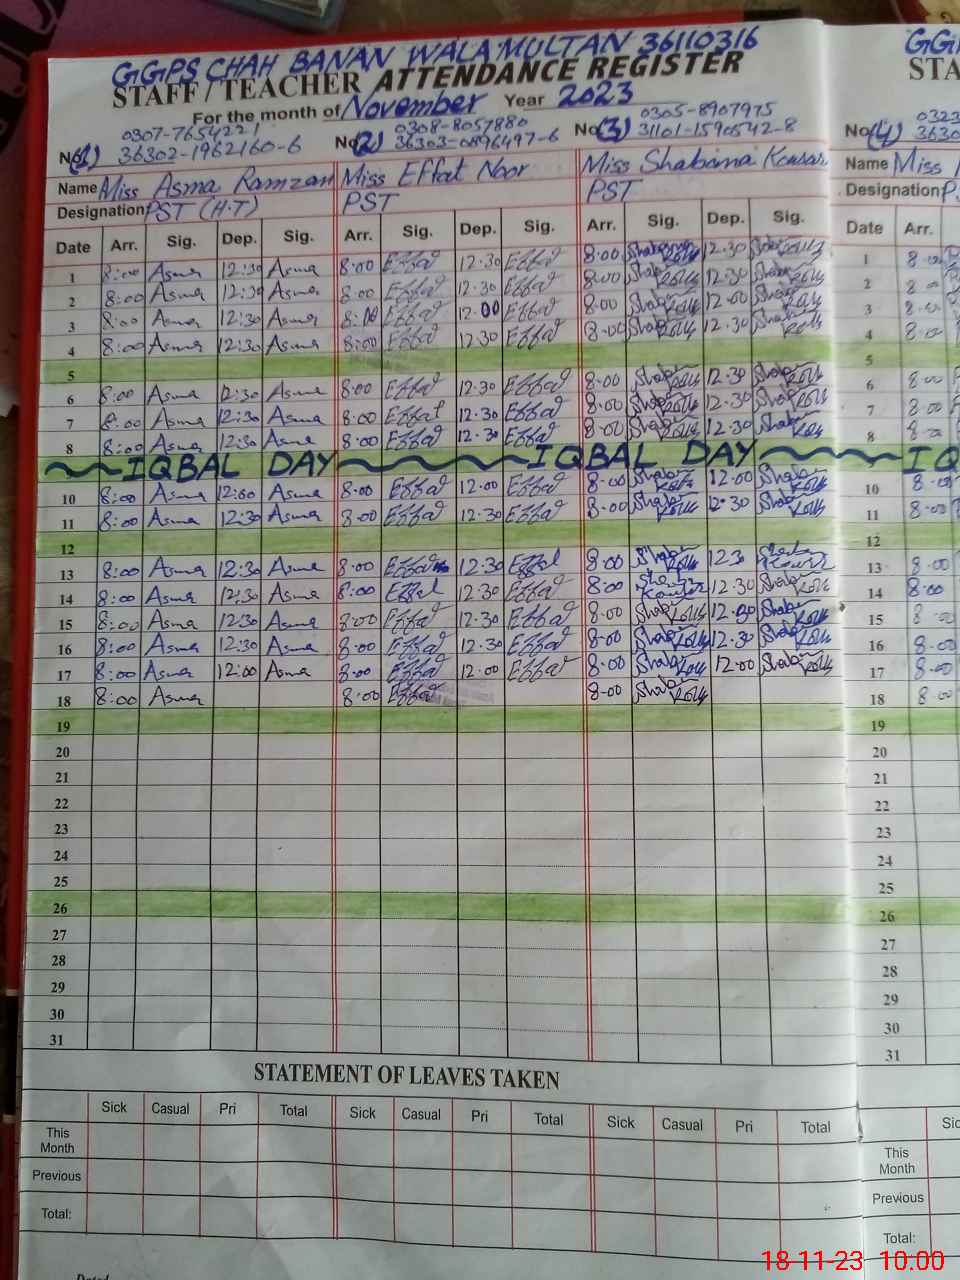 GGPS CHAH BANAN WALA MULTAN 36110316
STAFF / TEACHER ATTENDANCE REGISTER
For the month of November Year 2023
0307-7654221 0308-8057880 0305-8907975 0323
No(1) 36302-1962160-6 No(2) 36303-0896497-6 No(3) 31101-1590542-8 No(4) 3630
Name Miss Asma Ramzan Miss Effat Noor Miss Shabana Kousar Name Miss
Designation PST (H.T) PST PST Designation
Date Arr. Sig. Dep. Sig. Arr. Sig. Dep. Sig. Arr. Sig. Dep. Sig. Date Arr.
1 8:00 Asma 12:30 Asma 8:00 Effat 12.30 Effat 8:00 12.30 1 8:00
2 8:00 Asma 12:30 Asma 8:00 Effat 12.30 Effat 8:00 12.30 2 8:00
3 8:00 Asma 12:30 Asma 8:00 Effat 12.00 Effat 8:00 12.00 3 8:00
4 8:00 Asma 12:30 Asma 8:00 Effat 12.30 Effat 8:00 12.30 4 8:00
5 5
6 8:00 Asma 12:30 Asma 8:00 Effat 12.30 Effat 8:00 12.30 6 8:00
7 8:00 Asma 12:30 Asma 8:00 Effat 12.30 Effat 8:00 12.30 7 8:00
8 8:00 Asma 12:30 Asma 8:00 Effat 12.30 Effat 8:00 12.30 8 8:00
IQBAL DAY IQBAL DAY IQ
10 8:00 Asma 12:00 Asma 8:00 Effat 12.00 Effat 8:00 12.00 10 8:00
11 8:00 Asma 12:30 Asma 8:00 Effat 12.30 Effat 8:00 12.30 11 8:00
12 12
13 8:00 Asma 12:30 Asma 8:00 Effat 12.30 Effat 8:00 12.3 13 8:00
14 8:00 Asma 12:30 Asma 8:00 Effat 12.30 Effat 8:00 12.30 14 8:00
15 8:00 Asma 12:30 Asma 8:00 Effat 12.30 Effat 8:00 12.30 15 8:00
16 8:00 Asma 12:30 Asma 8:00 Effat 12.30 Effat 8:00 12.30 16 8:00
17 8:00 Asma 12:00 Asma 8:00 Effat 12.00 Effat 8:00 12.00 17 8:00
18 8:00 Asma 8:00 Effat 8:00 18 8:00
19 19
20 20
21 21
22 22
23 23
24 24
25 25
26 26
27 27
28 28
29 29
30 30
31 31
STATEMENT OF LEAVES TAKEN
Sick Casual Pri Total Sick Casual Pri Total Sick Casual Pri Total
This Month This Month
Previous Previous
Total: Total:
Dated
18-11-23 10.00